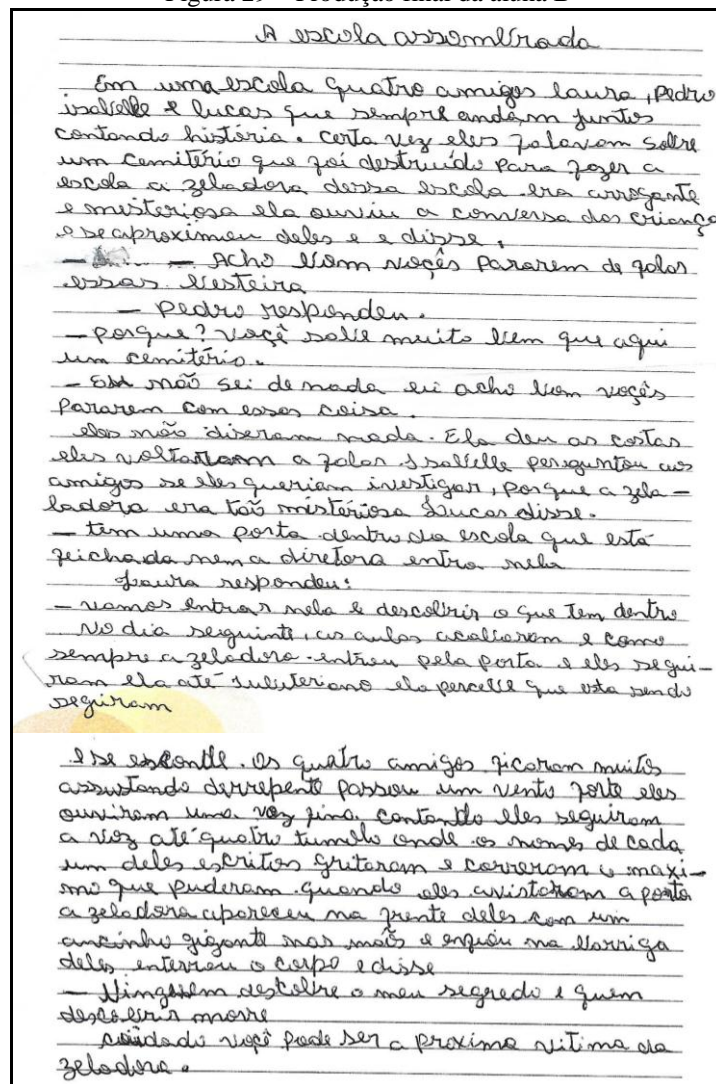 Figura 29 – Produção final da aluna B
A escola assombrada
Em uma escola quatro amigos laura, Pedro
isabelle e lucas que sempre andam juntos
contando história. certa vez eles falavam sobre
um cemitério que foi destruído para fazer a
escola a zeladora dessa escola era arrogante
e misteriosa ela ouviu a conversa das criança
e se aproximou deles e e disse,
– – Acho bom voçês pararem de falar
essas besteira
– Pedro respondeu.
– porque? você sabe muito bem que aqui
um cemitério.
– Eu não sei de nada eu acho bom voçês
pararem com essas coisa.
eles não diseram nada. Ela deu as costas
eles voltaram a falar. Isabelle perguntou aos
amigos se eles queriam investigar, porque a zela-
ladora era tão misteriosa Lucas disse.
– tem uma porta dentro da escola que está
feichada nem a diretora entra nela
Laura respondeu:
– vamos entrar nela e descobrir o que tem dentro
No dia seguinte, as aulas acabaram e como
sempre a zeladora entrou pela porta e eles segui-
ram ela até subteriano ela percebe que esta sendo
seguiram
e se esconde. Os quatro amigos ficaram muitos
assustando derrepente passou um vento forte eles
ouviram uma voz fina contando eles seguiram
a voz até quatro tumulo onde os nomes de cada
um deles escritos gritaram e correram o maxi-
mo que puderam quando eles avistaram a porta
a zeladora apareceu na frente deles com um
ancinho gigante nas mãos e enfiou na barriga
deles enterrou o corpo e disse
– Ninguem descobre o meu segredo e quem
descobrir morre
cuidado voçê pode ser a proxima vitima da
zeladora.